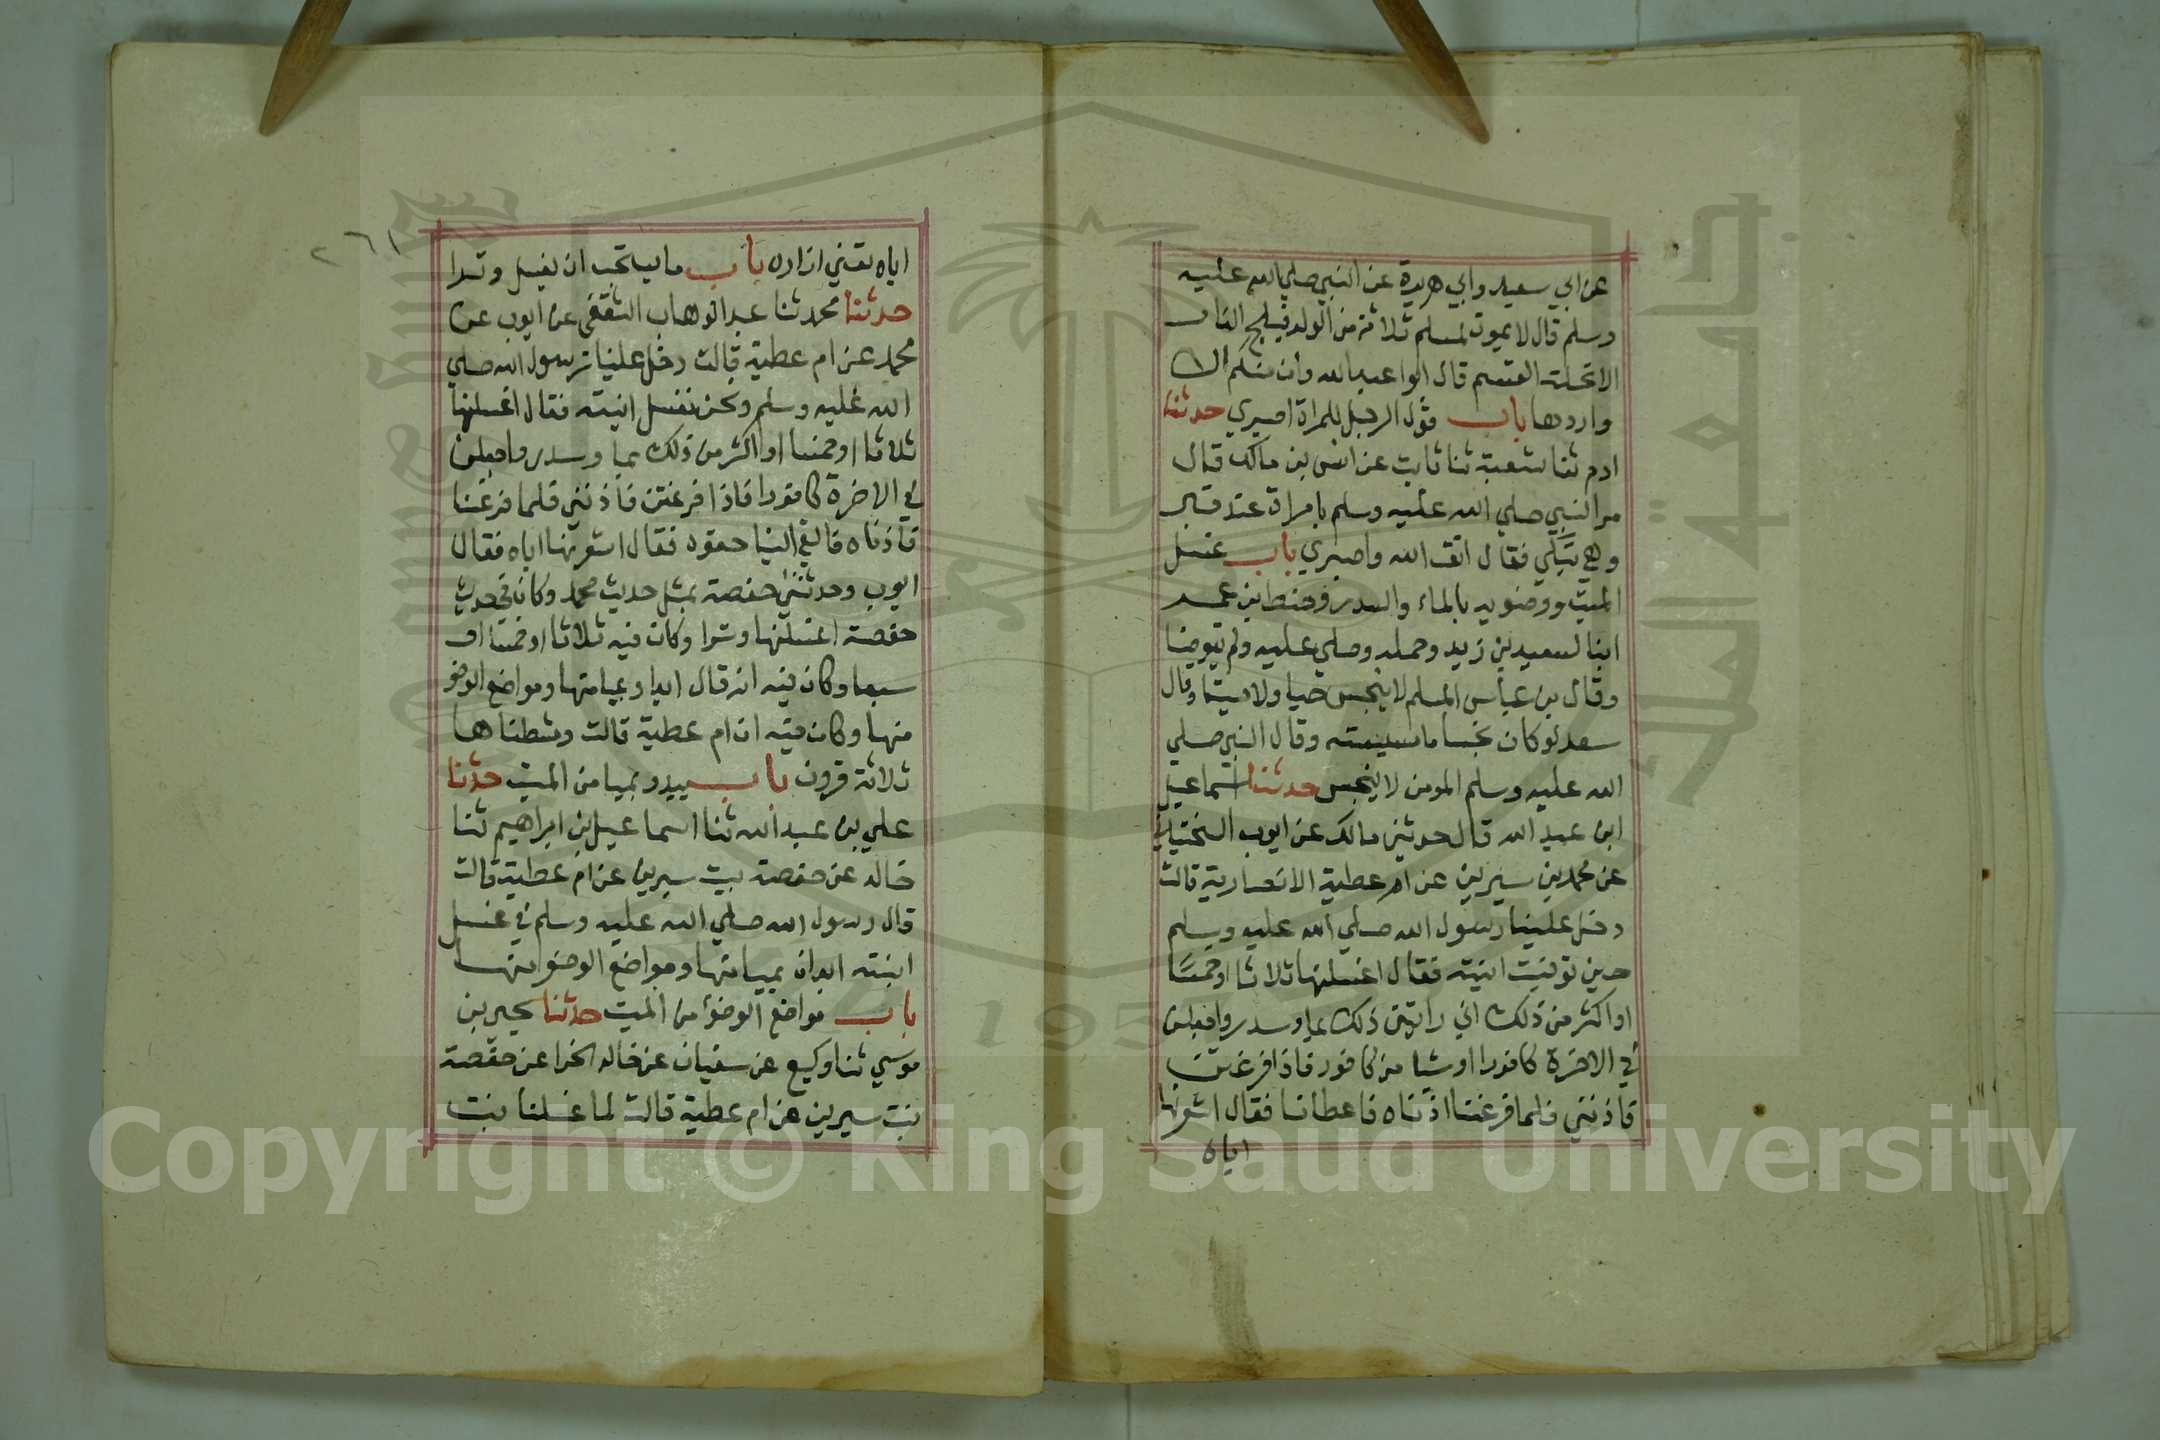 عن ابي سعيد وابي هريرة عن النبي صلي الله عليه
وسلم قال لا يموت لمسلم ثلاثة من الولد فيلج النار
الا تحلة القسم قال ابوا عبد الله وان منكم الا
واردها باب قول الرجل للمراة اصبري حدثنا
ادم ثنا شعبة ثنا ثابت عن انس بن مالك قال
مر النبي صلي الله عليه وسلم بامراة عند قبر
وهي تبكي فقال اتق الله واصبري باب غسل
الميت ووضويه بالماء والسدر وحنط ابن عمر
ابنا لسعيد بن زيد وحمله وصلي عليه ولم يتوضا
وقال بن عباس المسلم لا ينجس حيا ولا ميتا وقال
سعد لو كان نجسا ما مسسته وقال النبي صلي
الله عليه وسلم المومن لا ينجس حدثنا اسماعيل
ابن عبد الله قال حدثني مالك عن ايوب السختياني
عن محمد بن سيرين عن ام عطية الانصارية قالت
دخل علينا رسول الله صلي الله عليه وسلم
حين توفيت ابنته فقال اغسلنها ثلاثا او خمسا
او اكثر من ذلك ان راتين ذلك بما وسدر واجعلن
في الاخرة كافورا او شيا من كافور فاذا فرغتن
فاذنني فلما فرغنا اذناه فاعطانا فقال اشعرنها
اياه
٢٦١
اياه تعني ازاره باب ما يستحب ان يغسل وترا
حدثنا محمد ثنا عبد الوهاب الثقفي عن ايوب عن
محمد عن ام عطية قالت دخل علينا رسول الله صلي
الله عليه وسلم ونحن نغسل ابنته فقال اغسلنها
ثلاثا او خمسا او اكثر من ذلك بما وسدر واجعلن
في الاخرة كافورا فاذا فرغتن فاذنني فلما فرغنا
فاذناه فالقي الينا حقوه فقال اشعرنها اياه فقال
ايوب وحدثتني حفصة بمثل حديث محمد وكان في حديث
حفصة اغسلنها وترا وكان فيه ثلاثا او خمسا او
سبعا وكان فيه انه قال ابداو بميامنها ومواضع الوضو
منها وكان فيه ان ام عطية قالت ومشطناها
ثلاثة قرون باب يبدو بميامن الميت حدثنا
علي بن عبد الله ثنا اسماعيل بن ابراهيم ثنا
خالد عن حفصة بيت سيرين عن ام عطية قالت
قال رسول الله صلي الله عليه وسلم في غسل
ابنته ابدان بميامنها ومواضع الوضو منها
باب مواضع الوضوء من الميت حدثنا يحيي بن
موسي ثنا وكيع عن سفيان عن خالد الحذا عن حفصة
بنت سيرين عن ام عطية قالت لما غسلنا بنت
جامعة الملك سعود
1957
Copyright © King Saud University